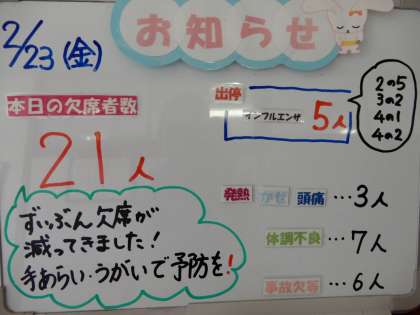 お知らせ
2/23(金)
本日の欠席者数
21人
出停
インフルエンザ 5人
2の5
3の2
4の1
4の2
発熱 かぜ 頭痛…3人
体調不良…7人
事故欠等…6人
ずいぶん欠席が
減ってきました!
手あらい・うがいで予防を!